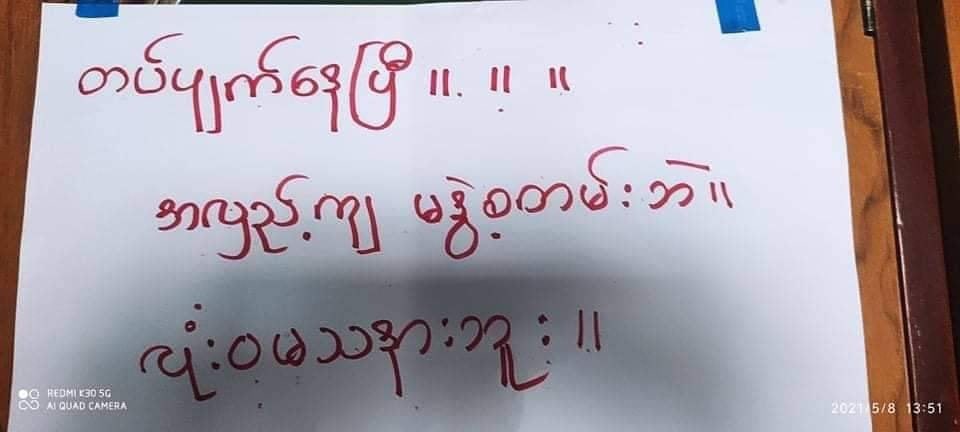 တပ်ပျက်နေပြီ ॥ ॥ ॥
အလှည့်ကျ မဒွဲစတမ်းဘဲ॥
လုံးဝမသနားဘူး ॥
REDMI K30 5G
AI QUAD CAMERA
2021/5/8 13:51